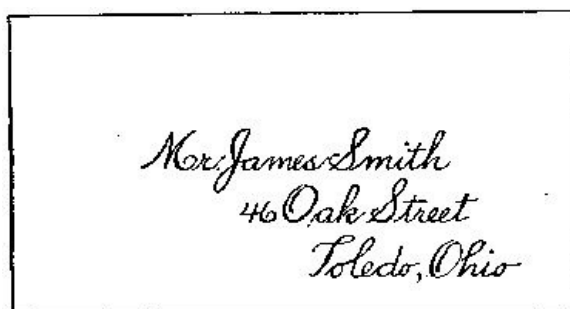 Mr. James Smith
46 Oak Street
Toledo, Ohio